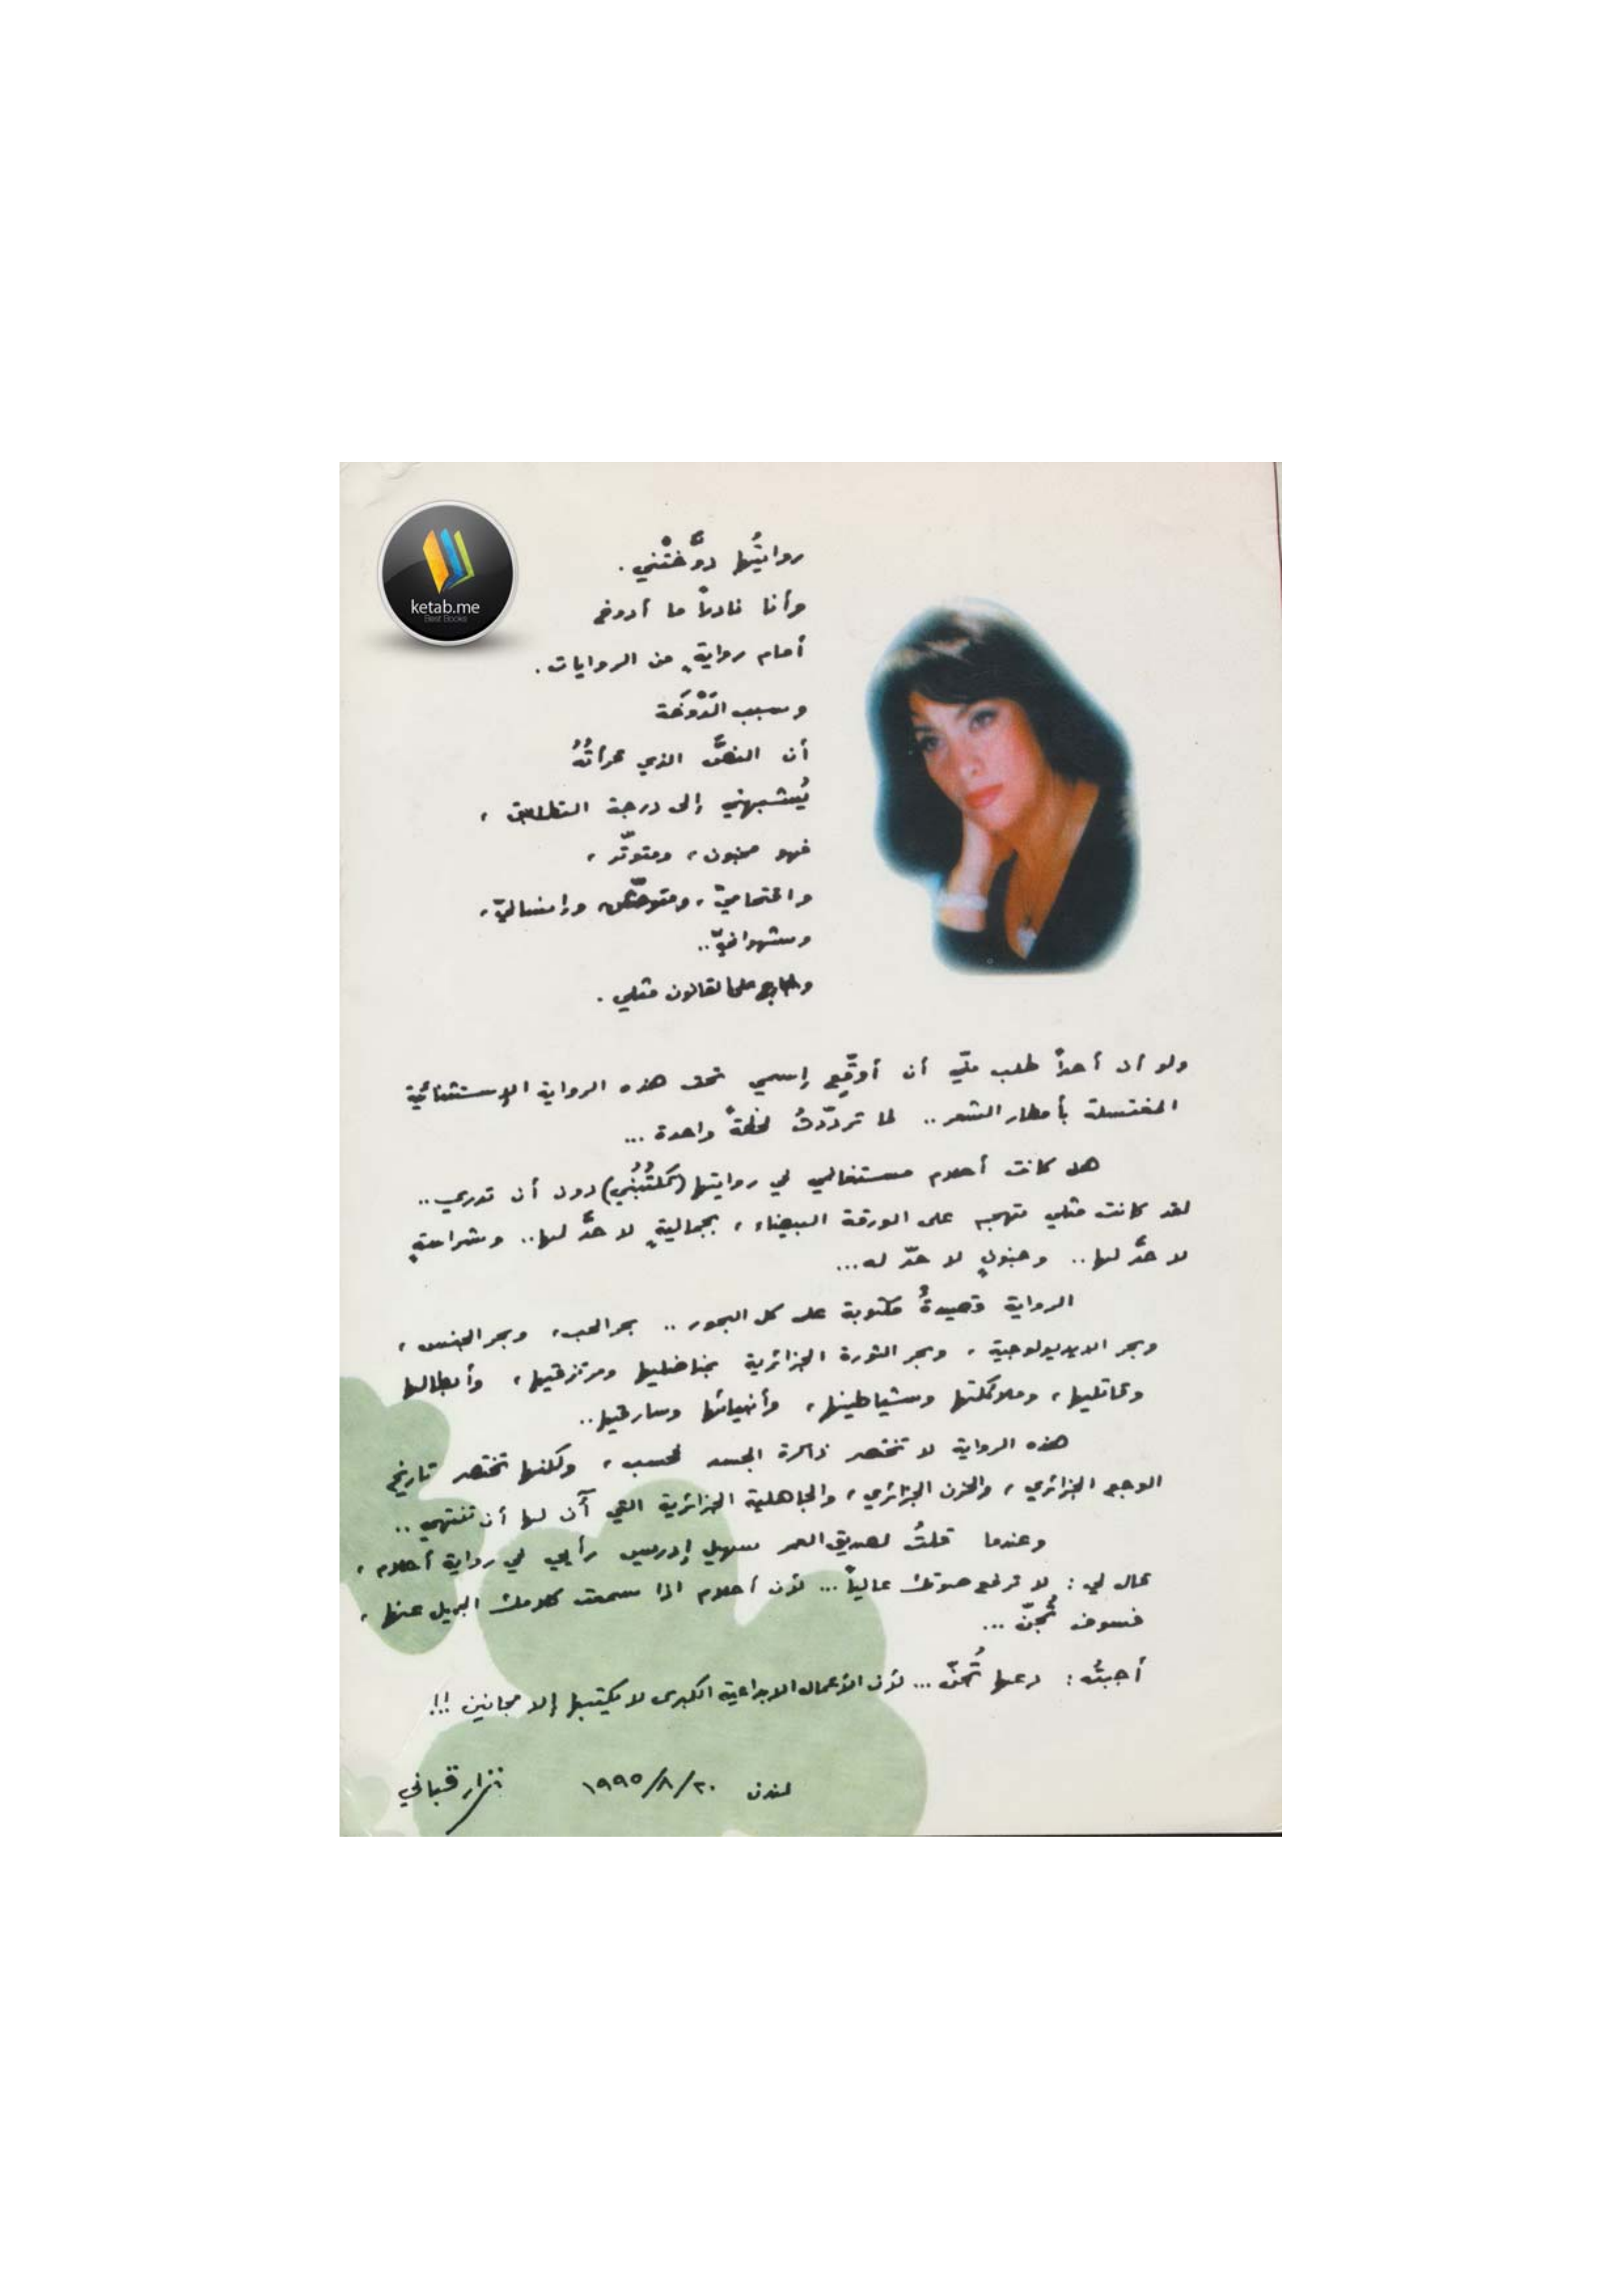 ketab.me
Best Books
روايتُها دوَّختْني .
وأنا نادراً ما أدوخ
أمام روايةٍ من الروايات .
وسبب الدَوْخَة
أن النصَّ الذي قرأتُهُ
يُشبهني إلى درجة التطابق ،
فهو مجنون ، ومتوتّر ،
واقتحاميّ ، ومتوحّش ، وإنسانيّ ،
وشهوانيّ ..
وخارج على القانون مثلي .
ولو أن أحداً طلب منّي أن أوقّع إسمي تحت هذه الرواية الإستثنائية
المغتسلة بأمطار الشعر .. لما تردّدتُ لحظةً واحدة ...
هل كانت أحلام مستغانمي في روايتها (تكتُبُني) دون أن تدري ..
لقد كانت مثلي تهجم على الورقة البيضاء ، بجماليةٍ لا حدَّ لها .. وشراسةٍ
لا حدَّ لها .. وجنونٍ لا حدّ له ...
الرواية قصيدةٌ مكتوبة على كل البحور .. بحر الحب ، وبحر الجنس ،
وبحر الايديولوجية ، وبحر الثورة الجزائرية بمناضليها ومرتزقيها ، وأبطالها
وقاتليها ، وملائكتها وشياطينها ، وأنبيائها وسارقيها ..
هذه الرواية لا تختصر ذاكرة الجسد فحسب ، ولكنها تختصر تاريخ
الوجع الجزائري ، والحزن الجزائري ، والجاهلية الجزائرية التي آن لها أن تنتهي ..
وعندما قلتُ لصديق العمر سهيل إدريس رأيي في رواية أحلام ،
قال لي : لا ترفع صوتك عالياً ... لأن أحلام اذا سمعت كلامك الجميل عنها ،
فسوف تُجنّ ...
أجبتُه : دعها تُجنّ ... لأن الأعمال الابداعية الكبرى لا يكتبها إلا مجانين !!
لندن ٢٠/٨/١٩٩٥ نزار قباني